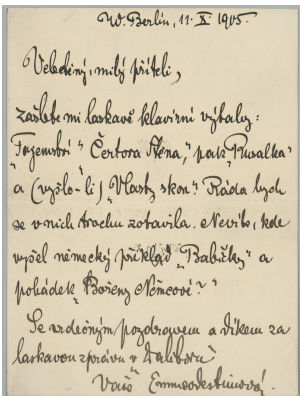 W. Berlin, 11. X 1905.
Velectěný, milý příteli,
zašlete mi laskavě klavírní výtahy:
"Tajemství" "Čertova stěna," pak "Rusalka"
a (vyšlo-li) "Vlasty skon" Ráda bych
se v nich trochu zotavila. Nevíte, kde
vyšel německý překlad "Babičky" a
pohádek "Boženy Němcové?"
Se srdečným pozdravem a díkem za
laskavou zprávu v "Daliboru"
Vaše Emmadestinnová.